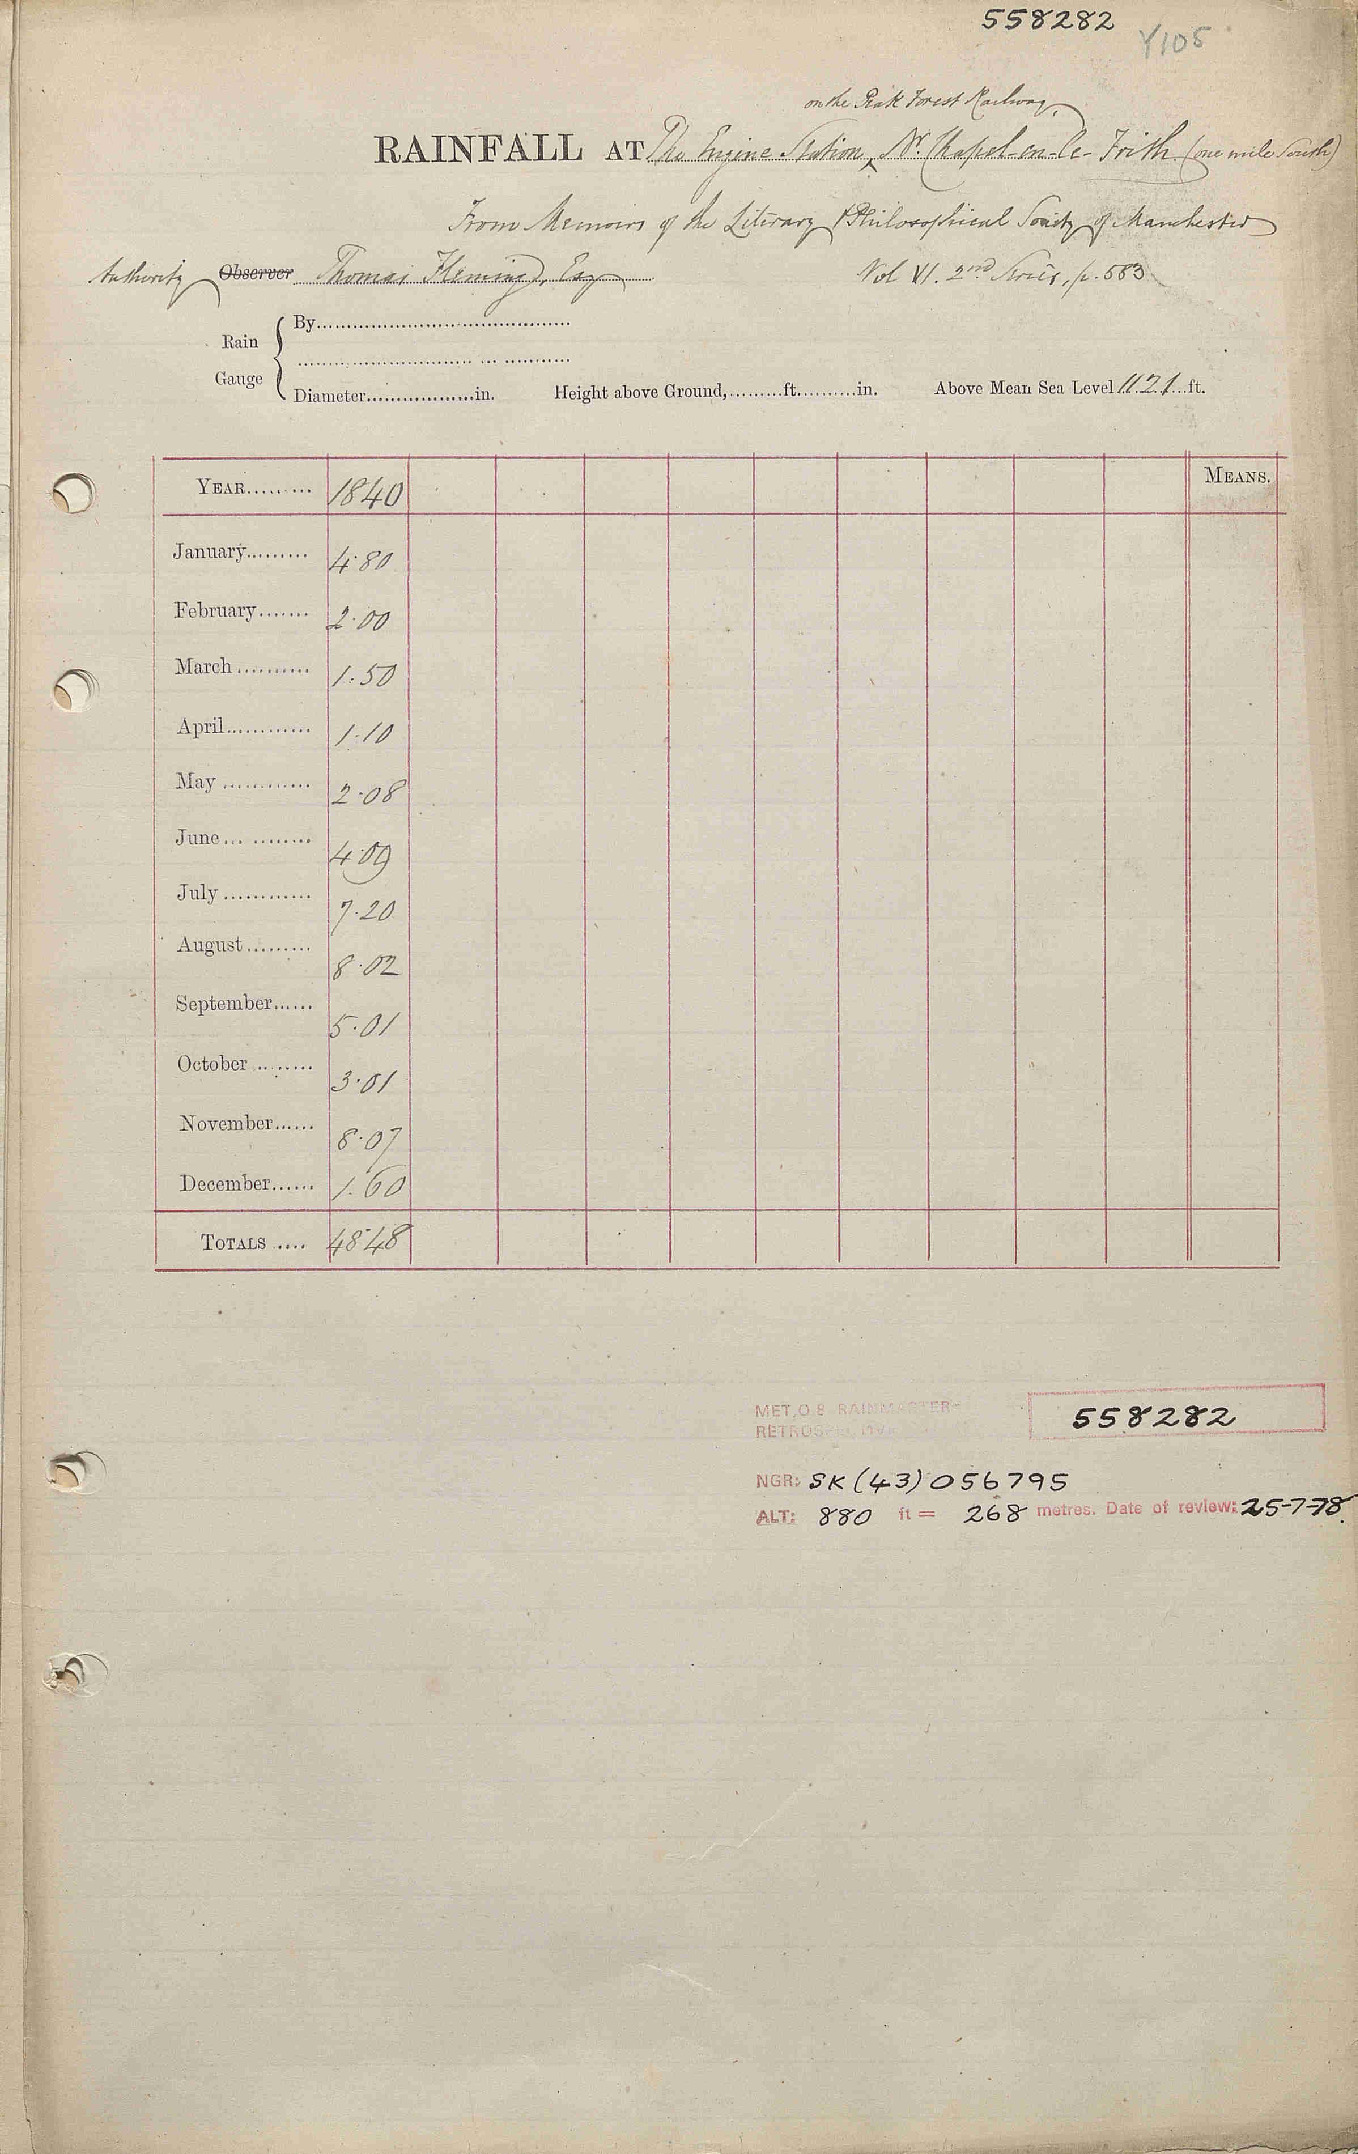 558282
Y105
on the Peak Forest Railway
RAINFALL AT The Engine Station, Nr. Chapel-en-le-Frith (one mile South)
From Memoirs of the Literary & Philosophical Society of Manchester
Authority Observer Thomas Fleming, Esq Vol VI. 2nd Series, p. 583
Rain Gauge
By
Diameter in. Height above Ground, ft. in. Above Mean Sea Level 1121 ft.
YEAR 1840 MEANS.
January 4.80
February 2.00
March 1.50
April 1.10
May 2.08
June 4.09
July 7.20
August 8.02
September 5.01
October 3.01
November 8.07
December 1.60
TOTALS 48.48
MET.O.8 RAINMASTER
RETROSPECTIVE
558282
NGR: SK (43) 056795
ALT: 880 ft = 268 metres. Date of review: 25-7-78.